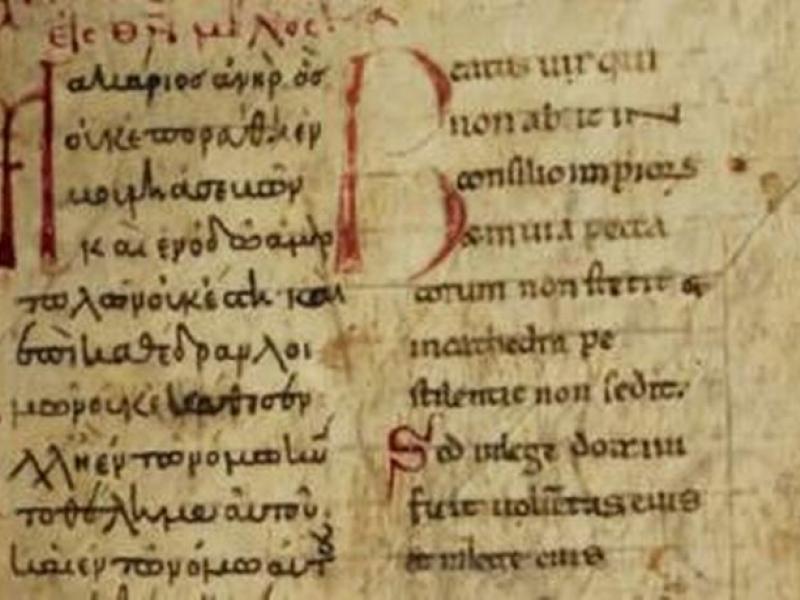 Μακάριος ἀνὴρ ὁς
ἐν
ἀσεβῶν
καὶ ἐν ὁδῶ ἁμαρ
τωλῶν οὐκ ἐστη και
ἐπὶ καθέδραν λοι
μῶν οὐκ ἐκάθισεν
ἀλλ ἢ ἐν τῶ νομω κυ
το θέλημα αὐτοῦ
και ἐν τῶ νόμω αὐτ
Beatus uir qui
non abiit in
consilio impior
& in uia pecca
torum non stetit &
in cathedra pe
stilentie non sedit.
Sed in lege domini
fuit uolūtas eius
& in lege eius